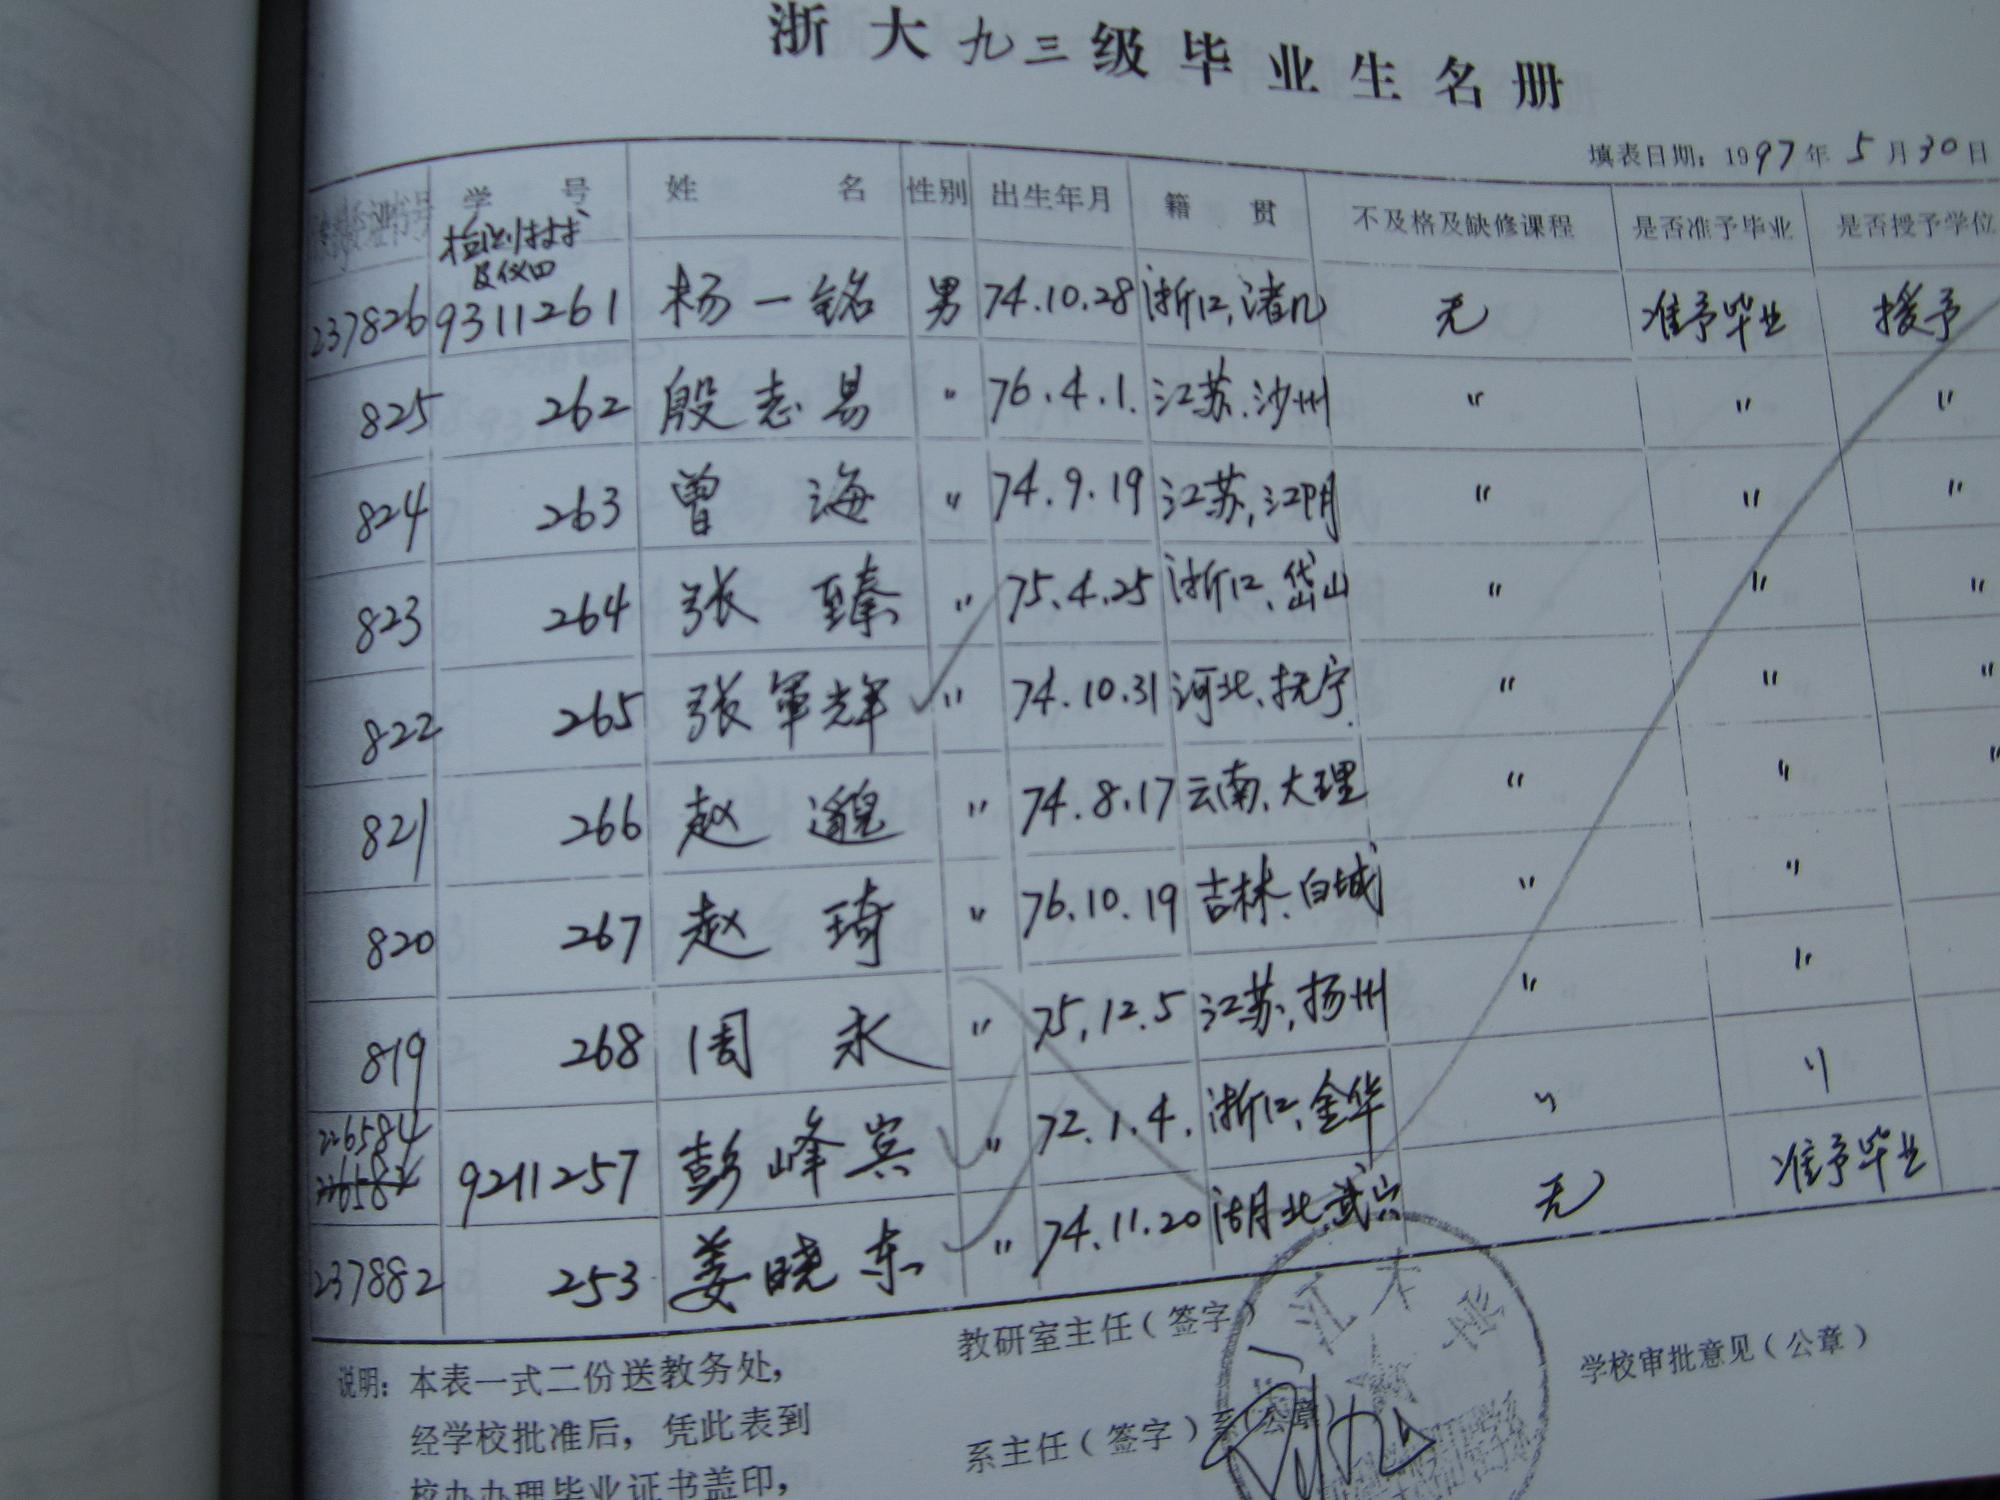 浙大九三级毕业生名册
填表日期：1997年5月30日
学号 姓名 性别 出生年月 籍贯 不及格及缺修课程 是否准予毕业 是否授予学位
检测技术
及仪四
237826 9311261 杨一铭 男 74.10.28 浙江,诸几 无 准予毕业 授予
825 262 殷志易 〃 76.4.1. 江苏.沙州 〃 〃 〃
824 263 曾海 〃 74.9.19 江苏,江阴 〃 〃 〃
823 264 张臻 〃 75.4.25 浙江、岱山 〃 〃 〃
822 265 张军辉 〃 74.10.31 河北、抚宁 〃 〃 〃
821 266 赵邈 〃 74.8.17 云南、大理 〃 〃 〃
820 267 赵琦 〃 76.10.19 吉林、白城 〃 〃
819 268 周永 〃 75.12.5 江苏,扬州 〃 〃
226584
9211257 彭峰宾 〃 72.1.4. 浙江、金华 〃 〃
237882 253 姜晓东 〃 74.11.20 湖北、武穴 无 准予毕业
教研室主任（签字）
学校审批意见（公章）
说明：本表一式二份送教务处，
经学校批准后，凭此表到
系主任（签字）系（公章）
校办办理毕业证书盖印，